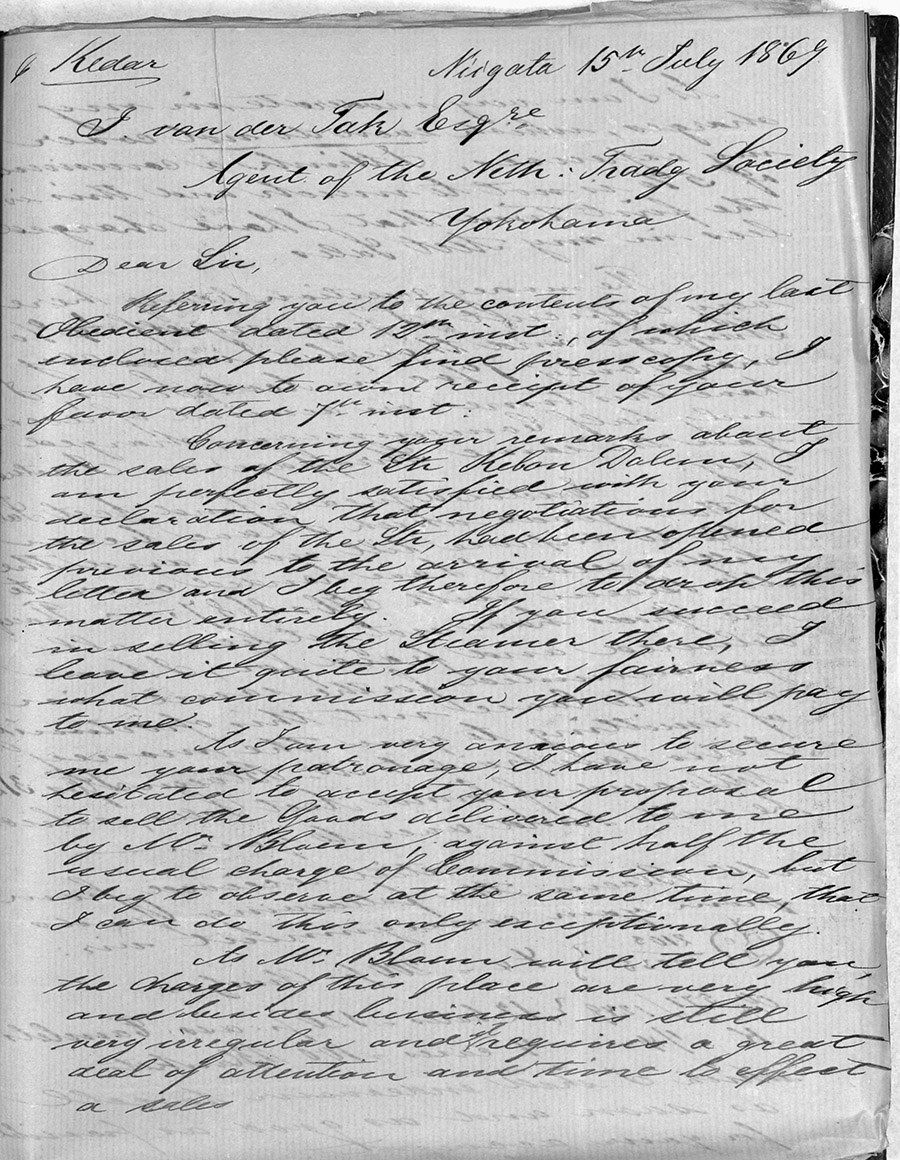 Kedar
Niigata 15th July 1869
J. van der Tak Esqre
Agent of the Neth: Tradg Society
Yokohama
Dear Sir,
Referring you to the contents of my last
Obedient dated 12th inst:, of which
enclosed please find presscopy, I
have now to own receipt of your
favor dated 7th inst:
Concerning your remarks about
the sales of the Str Kebon Dalem, I
am perfectly satisfied with your
declaration that negotiations for
the sales of the Str, had been opened
previous to the arrival of my
letter and I beg therefore to drop this
matter entirely. If you succeed
in selling the Steamer there, I
leave it quite to your fairness
what commission you will pay
to me.
As I am very anxious to secure
me your patronage, I have not
hesitated to accept your proposal
to sell the Goods delivered to me
by Mr. Blaun, against half the
usual charge of Commission, but
I beg to observe at the same time, that
I can do this only exceptionally.
As Mr. Blaun will tell you,
the charges of this place are very high
and besides business is still
very irregular and requires a great
deal of attention and time to effect
a sales